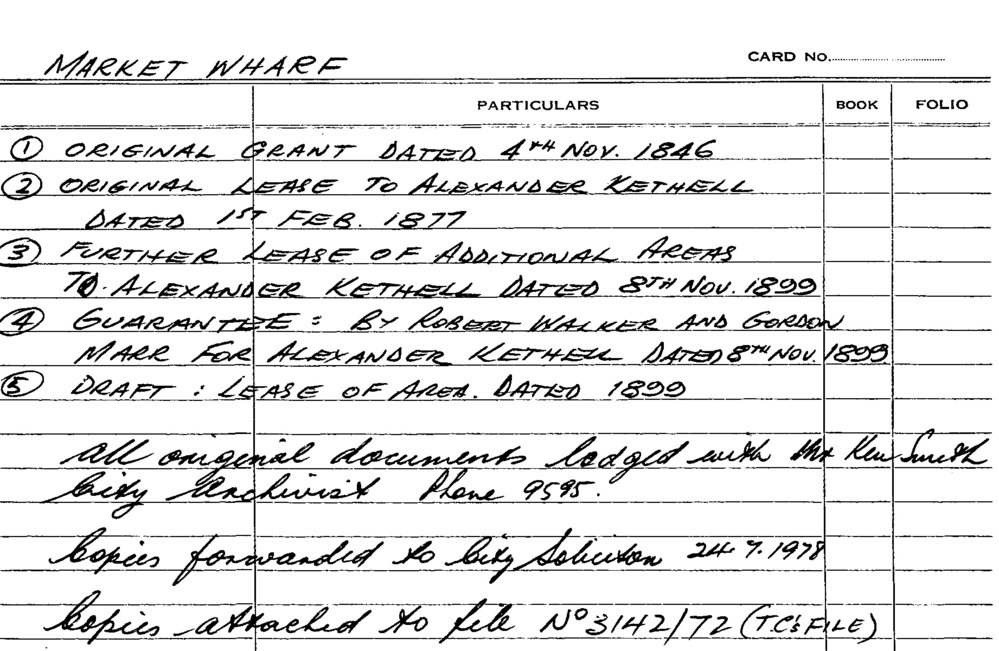 MARKET WHARF
CARD No.
PARTICULARS BOOK FOLIO
① ORIGINAL GRANT DATED 4TH NOV. 1846
② ORIGINAL LEASE TO ALEXANDER KETHELL
DATED 1ST FEB. 1877
③ FURTHER LEASE OF ADDITIONAL AREAS
TO. ALEXANDER KETHELL DATED 8TH NOV. 1899
④ GUARANTEE : BY ROBERT WALKER AND GORDON
MARR FOR ALEXANDER KETHELL DATED 8TH NOV. 1899
⑤ DRAFT : LEASE OF AREA. DATED 1899
All original documents lodged with Mr Ken Smith
City Archivist Phone 9595.
Copies forwarded to City Solicitor 24.7.1978
Copies attached to file No 3142/72 (T.C's FILE)